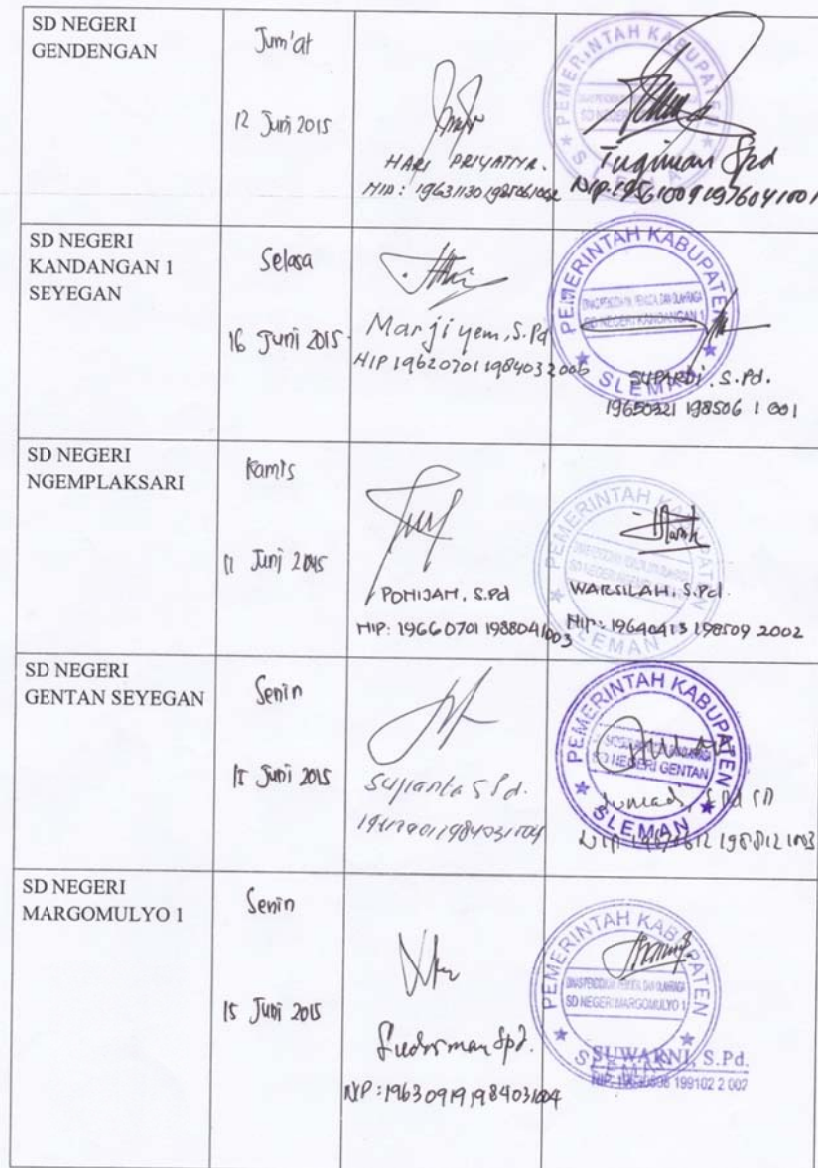 SD NEGERI
GENDENGAN
Jum'at
12 Juni 2015
HARI PRIYATNA.
NIP: 19631130 198506 1002
PEMERINTAH KABUPATEN
SLEMAN
Tugiman Spd
NIP. 19561009 197604 1001
SD NEGERI
KANDANGAN 1
SEYEGAN
Selasa
16 Juni 2015
Marjiyem, S.Pd
NIP 19620701 198403 2006
PEMERINTAH KABUPATEN
SD NEGERI KANDANGAN 1
SLEMAN
SUPARDI, S.Pd.
19650321 198506 1 001
SD NEGERI
NGEMPLAKSARI
Kamis
11 Juni 2015
PONIJAH, S.Pd
NIP: 19660701 1988041003
PEMERINTAH KABUPATEN
SLEMAN
WARSILAH, S.Pd.
NIP: 19640413 198509 2002
SD NEGERI
GENTAN SEYEGAN
Senin
15 Juni 2015
Supianta S Pd.
PEMERINTAH KABUPATEN
SD NEGERI GENTAN
SLEMAN
NIP
SD NEGERI
MARGOMULYO 1
Senin
15 Juni 2015
Sudirman Spd.
NIP: 19630919 198403 1004
PEMERINTAH KABUPATEN
DINAS PENDIDIKAN PEMUDA DAN OLAHRAGA
SD NEGERI MARGOMULYO 1
SLEMAN
SUWARNI, S.Pd.
199102 2 002